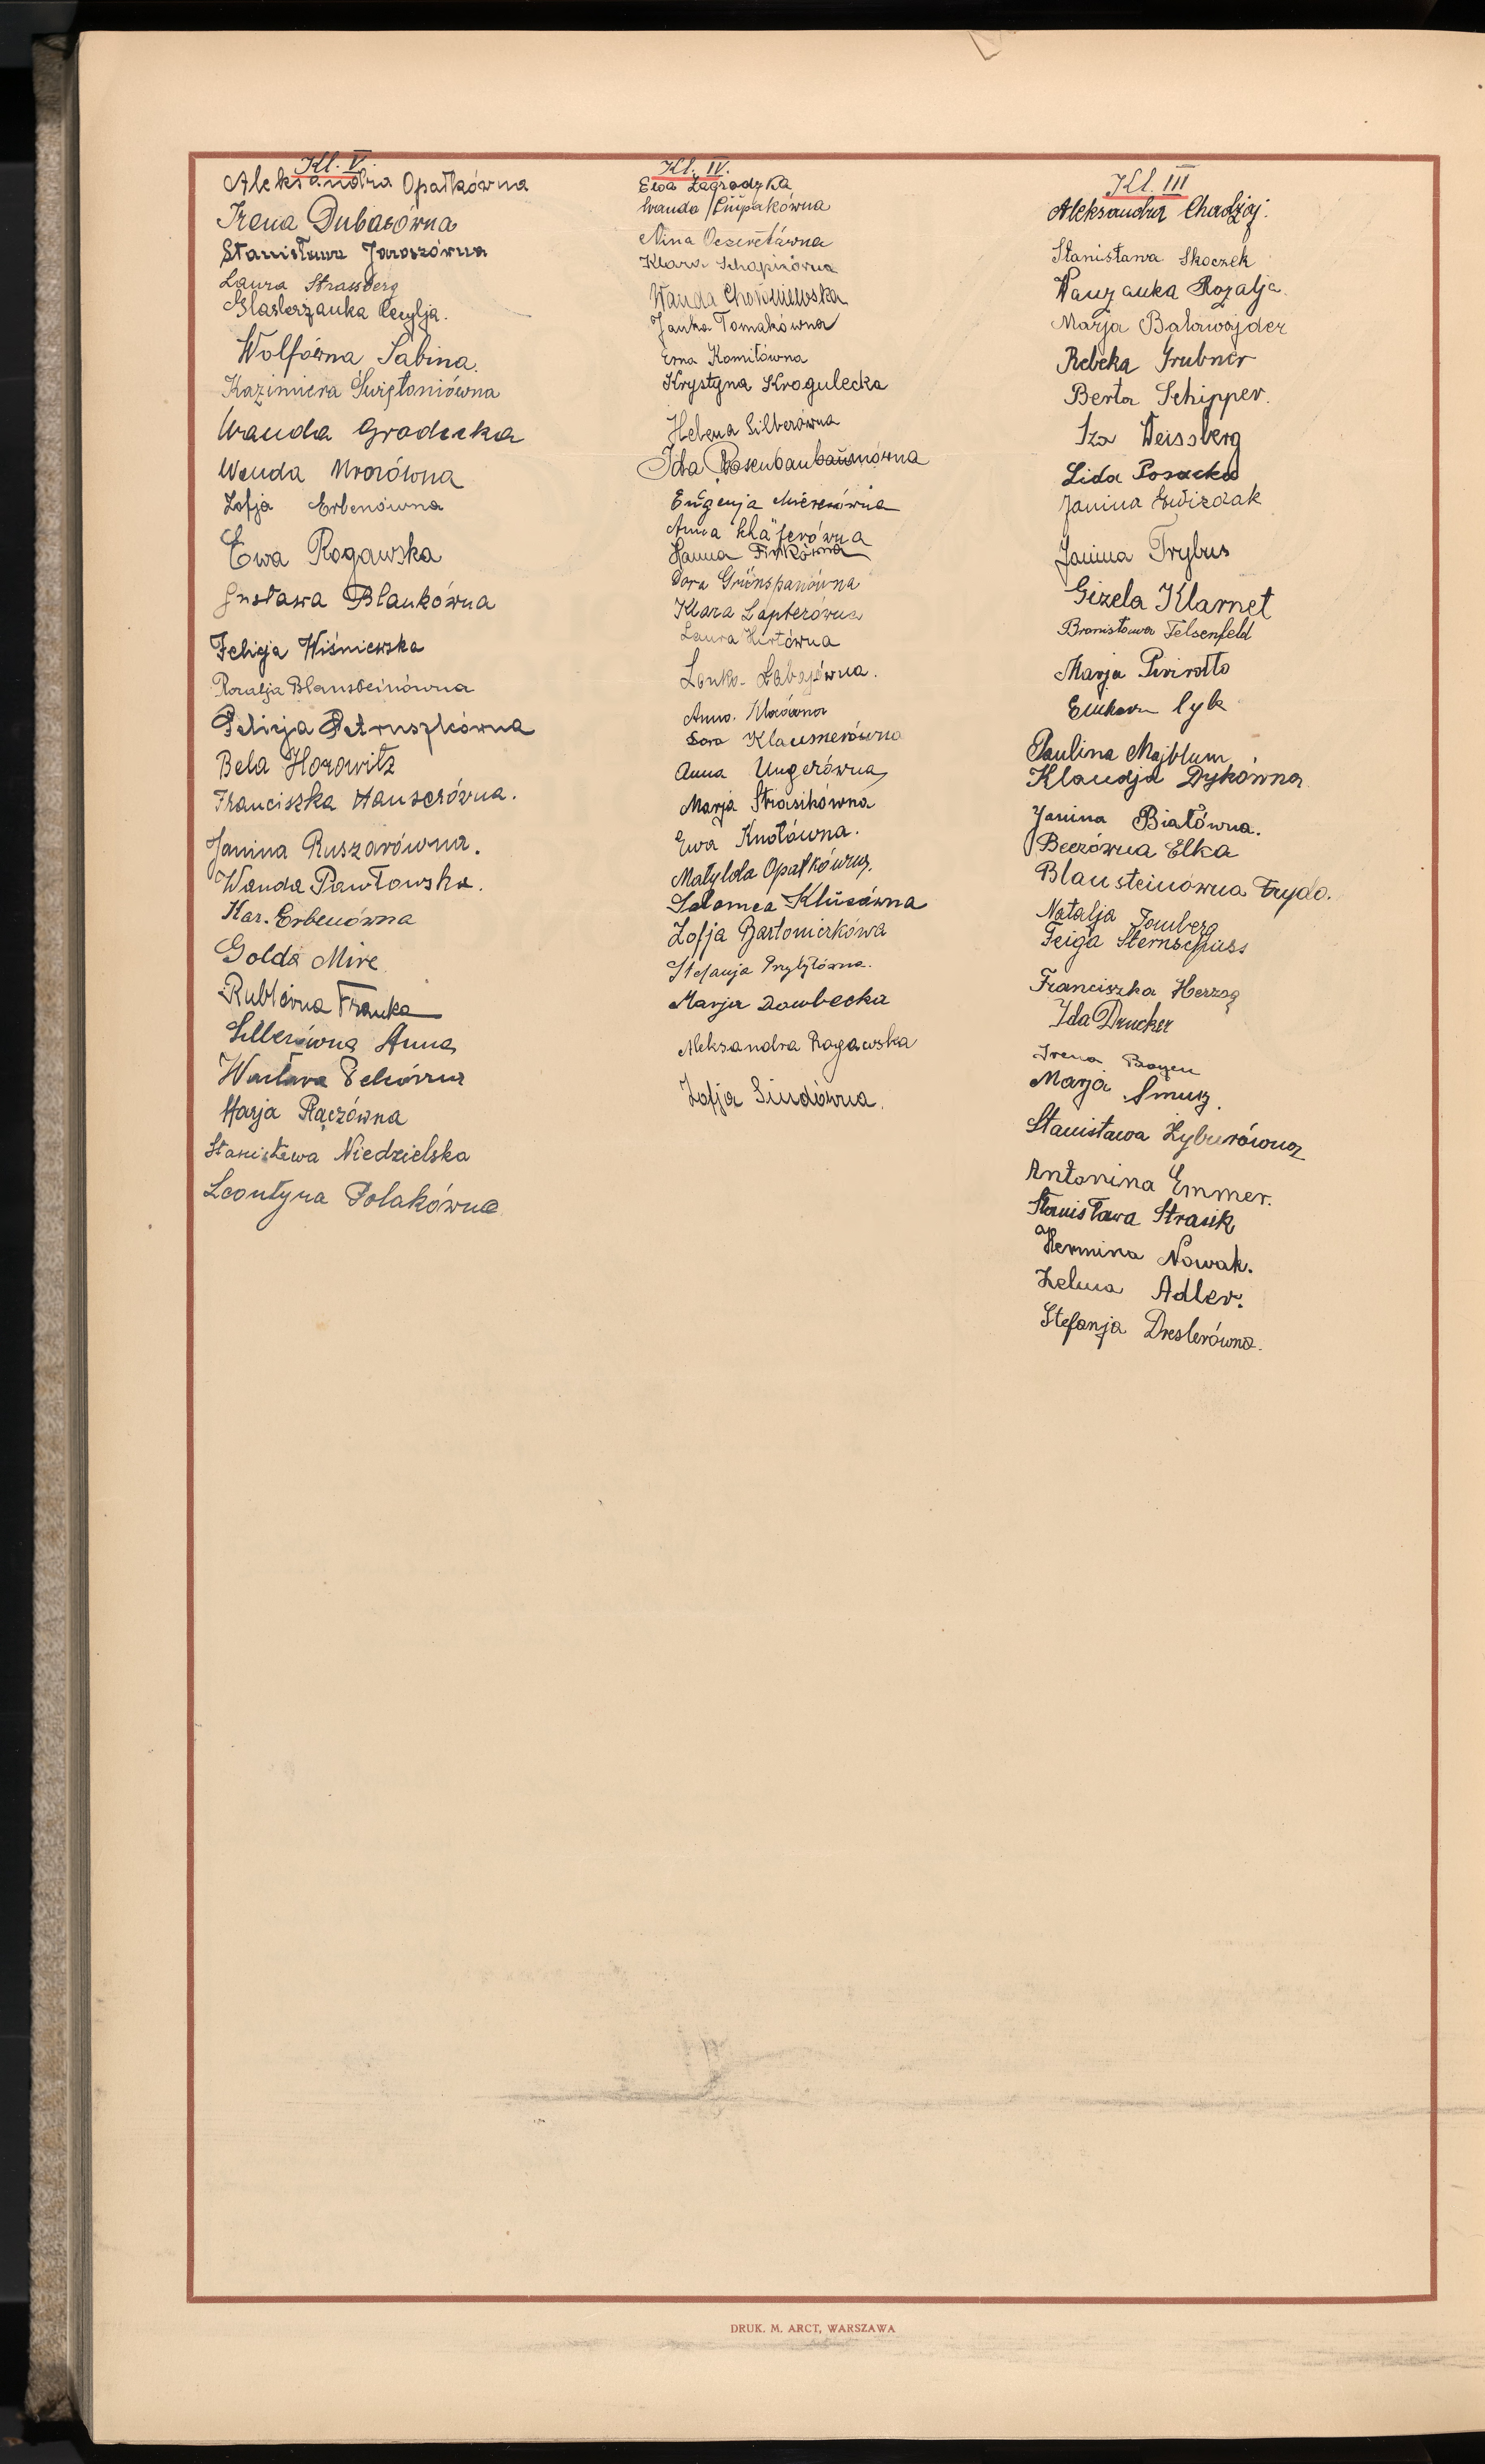 Kl. V.
Aleksandra Opałkówna
Irena Dubasówna
Stanisława Jaroszówna
Laura Strassberg
Glaserzanka Cecylja.
Wolfówna Sabina.
Kazimiera Świętoniówna
Wanda Gradecka
Wanda Mrozówna
Zofja Erbenówna
Ewa Rogawska
Gustawa Blankówna
Felicja Wiśniewska
Rozalja Blausteinówna
Felicja Petruszkówna
Bela Horowitz
Franciszka Hauserówna.
Janina Ruszarówna.
Wanda Pawłowska.
Kar. Erbenówna
Golda Mire
Rublówna Franka
Sillerówna Anna
Wacława
Marja Raczówna
Stanisława Niedzielska
Leontyna Polakówna
Kl. IV.
Ewa Zagrodzka
Wanda Ciupakówna
Nina Oczeretówna
Klara Schapirówna
Wanda Chołoniewska
Janka Tomakówna
Erna Komitówna
Krystyna Krogulecka
Helena Silberówna
Ida
Eugenja
Anna Schäferówna
Hanna Finkówna
Dora Grünspanówna
Klara Lapterówna
Laura Hirtówna
Lonka Łabajówna.
Anna
Sara Klausnerówna
Anna Ungerówna
Marja Strasikówna
Ewa Knotówna.
Matylda Opałkówna.
Salomea Klusówna
Zofja Bartonickówa
Stefanja Przybyłówna.
Marja Dowbecka
Aleksandra Rogawska
Zofja Siudówna.
Kl. III
Aleksandra Chodżaj.
Stanisława Skoczek
Rozalja
Marja Balawajder
Rebeka Grubner
Berta Schipper.
Iza Weissberg
Lida Posacka
Janina Gwizdak
Janina Trybus
Gizela Klarnet
Bronisława Felsenfeld
Marja
Paulina Majblum
Klaudja Dykówna
Janina Białówna.
Beerówna Elka
Blausteinówna Fryda.
Natalja Tomberg
Feiga Sternschuss
Franciszka Herzog
Ida Drucker
Irena Bayen
Marja Smusz.
Stanisława Żyburówna
Antonina Emmer.
Stanisława Strasik
Hermina Nowak.
Zelma Adler.
Stefanja Dreslerówna.
DRUK. M. ARCT, WARSZAWA